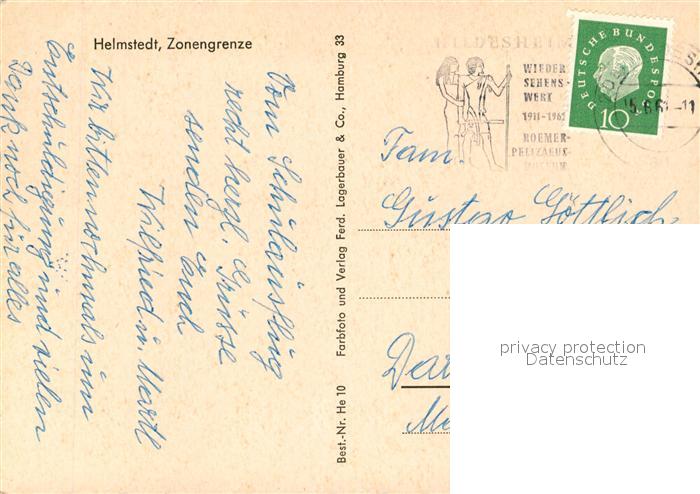 Helmstedt, Zonengrenze
Vom Schulausflug
recht herzl. Grüsse
senden Euch
Wilfried u. Martl
Wir bitten nochmals um
Entschuldigung und vielen
Dank noch für alles
Best.-Nr. He 10 Farbfoto und Verlag Ferd. Lagerbauer & Co., Hamburg 33
HILDESHEIM
WIEDER
SEHENS-
WERT
1911-1961
ROEMER-
PELIZAEUS-
MUSEUM
DEUTSCHE BUNDESPOST
10
5.6.61-11
Fam.
Gustav Göttlich
Dar
privacy protection
Datenschutz